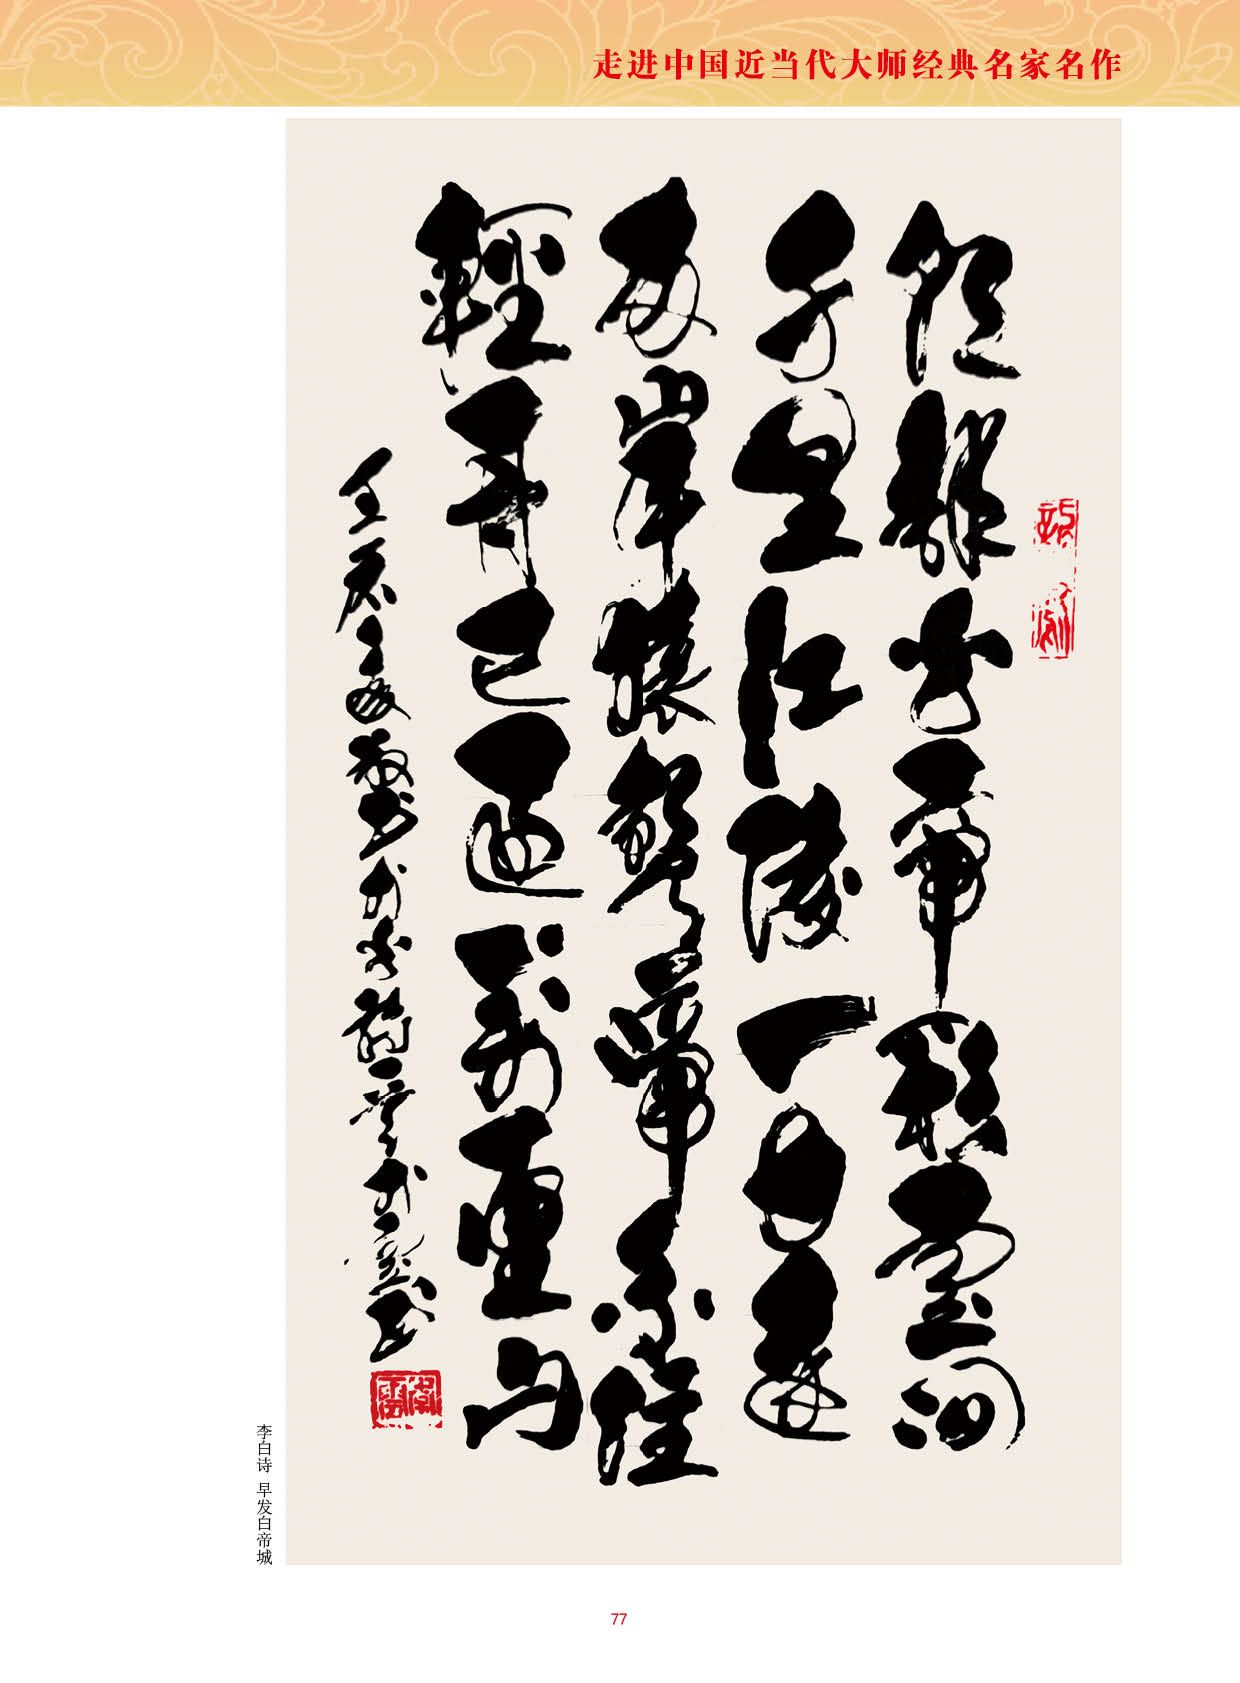 走进中国近当代大师经典名家名作
朝辞白帝彩云间
千里江陵一日还
两岸猿声啼不住
轻舟已过万重山
李白诗 早发白帝城
77